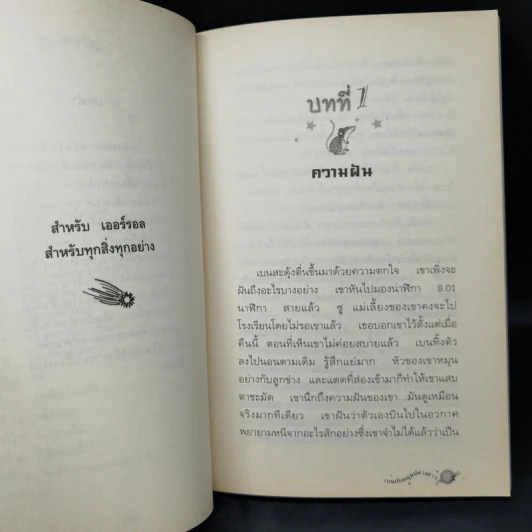 สำหรับ เออร์รอล
สำหรับทุกสิ่งทุกอย่าง
บทที่ 1
ความฝัน
เบนสะดุ้งตื่นขึ้นมาด้วยความตกใจ เขาเพิ่งจะ
ฝันถึงอะไรบางอย่าง เขาหันไปมองนาฬิกา 8.01
นาฬิกา สายแล้ว ซู แม่เลี้ยงของเขาคงจะไป
โรงเรียนโดยไม่รอเขาแล้ว เธอบอกเขาไว้ตั้งแต่เมื่อ
คืนนี้ ตอนที่เห็นเขาไม่ค่อยสบายแล้ว เบนทิ้งตัว
ลงไปนอนตามเดิม รู้สึกแย่มาก หัวของเขาหมุน
อย่างกับลูกข่าง และแดดที่ส่องเข้ามาก็ทำให้เขาแสบ
ตาชะมัด เขานึกถึงความฝันของเขา...มันดูเหมือน
จริงมากทีเดียว เขาฝันว่าตัวเองบินไปในอวกาศ
พยายามหนีจากอะไรสักอย่างซึ่งเขาจำไม่ได้แล้วว่าเป็น